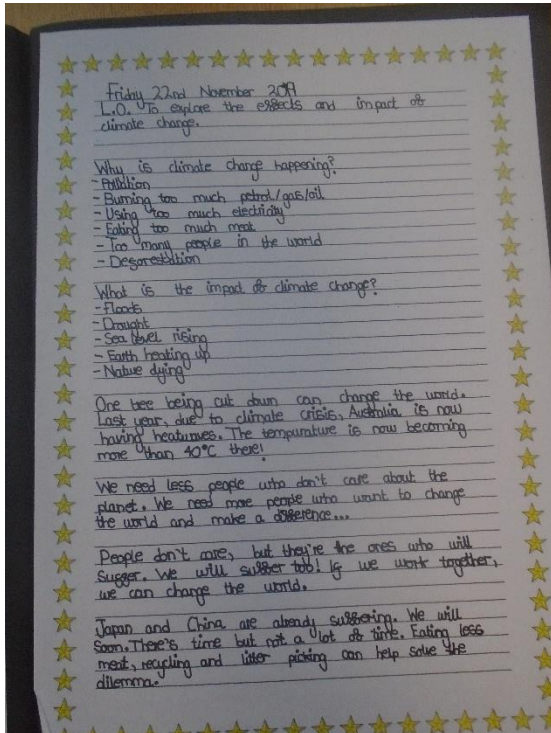 Friday 22nd November 2019
L.O. To explore the effects and impact of
climate change.
Why is climate change happening?
- Pollution
- Burning too much petrol/gas/oil
- Using too much electricity
- Eating too much meat
- Too many people in the world
- Deforestation
What is the impact of climate change?
- Floods
- Drought
- Sea level rising
- Earth heating up
- Nature dying
One tree being cut down can change the world.
Last year, due to climate crisis, Australia is now
having heatwaves. The tempurature is now becoming
more than 40°C there!
We need less people who don't care about the
planet. We need more people who want to change
the world and make a difference...
People don't care, but they're the ones who will
suffer. We will suffer too! If we work together,
we can change the world.
Japan and China are already suffering. We will
soon. There's time but not a lot of time. Eating less
meat, recycling and litter picking can help solve the
dilemma.